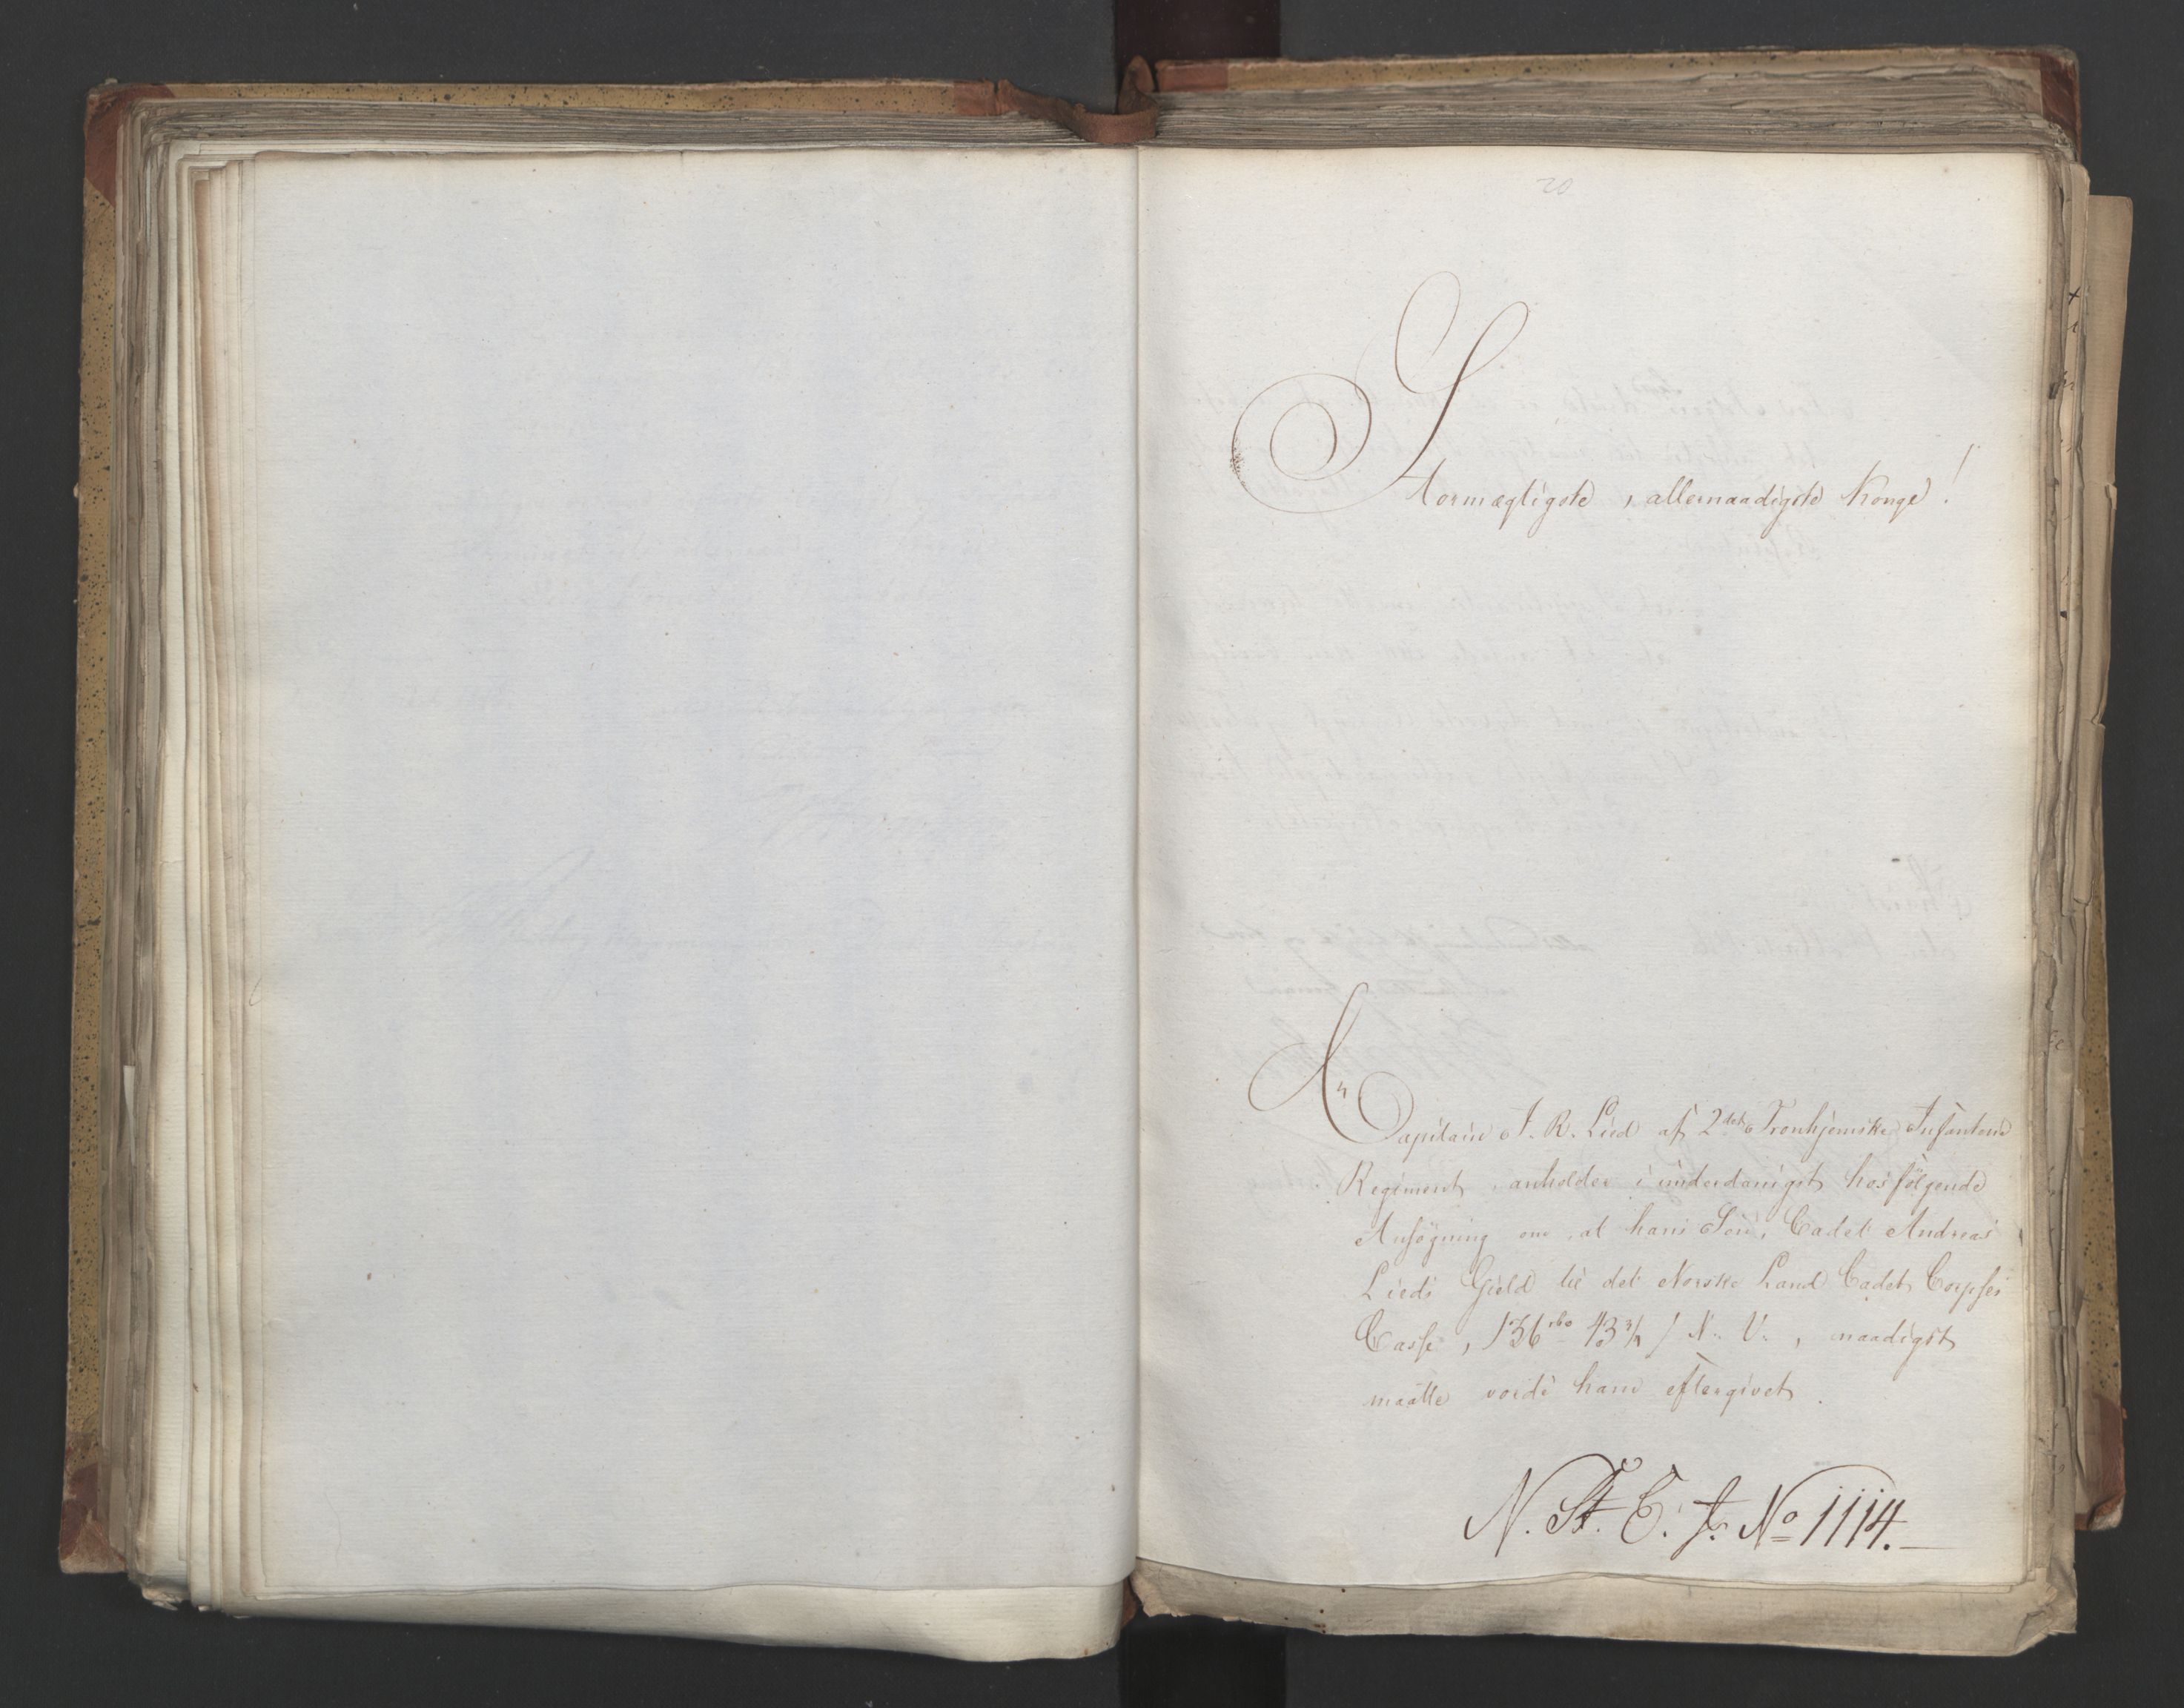 20
Stormægtigste, allernaadigste Konge!
An
Capitain J. R. Lied af 2det Tronhjemske Infanterie
Regiment, anholder i underdanigst hosfølgende
Ansøgning om, at hans Søn, Cadet Andreas
Lieds Gjeld til det Norske Land Cadet Corpses
Casse, 136 rbo 43 3/4 / N. V., naadigst
maatte vorde ham eftergivet.
N. St. E. J. No 1114.